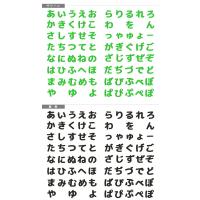 あいうえお らりるれろ
かきくけこ わ を ん
さしすせそ っゃゅょー
たちつてと がぎぐげご
なにぬねの ざじずぜぞ
はひふへほ だぢづでど
まみむめも ばびぶべぼ
や ゆ よ ぱぴぷぺぽ
あいうえお らりるれろ
かきくけこ わ を ん
さしすせそ っゃゅょー
たちつてと がぎぐげご
なにぬねの ざじずぜぞ
はひふへほ だぢづでど
まみむめも ばびぶべぼ
や ゆ よ ぱぴぷぺぽ